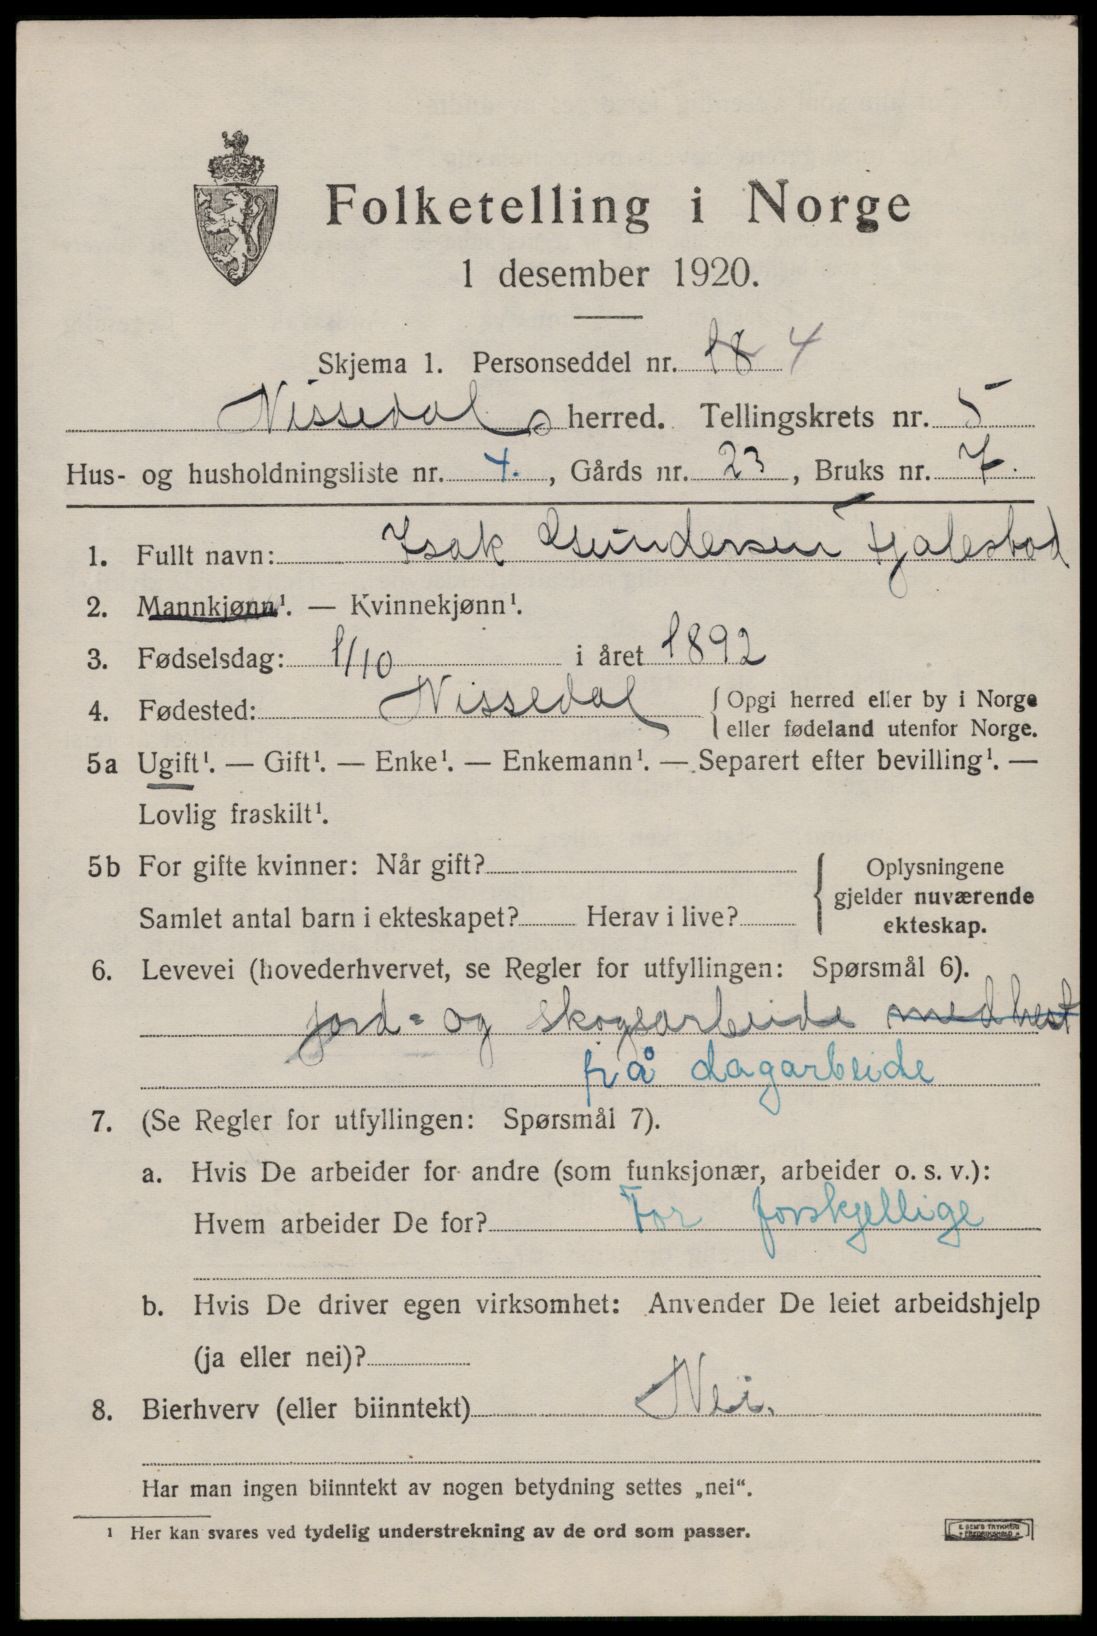 Folketelling i Norge
1 desember 1920.
Skjema 1. Personseddel nr. 18 4
Nissedals herred. Tellingskrets nr. 5
Hus- og husholdningsliste nr. 4., Gårds nr. 23, Bruks nr. 7.
1. Fullt navn: Isak Gundersen Tjalesbod
2. Mannkjønn¹. — Kvinnekjønn¹.
3. Fødselsdag: 1/10 i året 1892
4. Fødested: Nissedal { Opgi herred eller by i Norge
eller fødeland utenfor Norge.
5a Ugift¹. — Gift¹. — Enke¹. — Enkemann¹. — Separert efter bevilling¹. —
Lovlig fraskilt¹.
5b For gifte kvinner: Når gift? { Oplysningene
gjelder nuværende
Samlet antal barn i ekteskapet? Herav i live? ekteskap.
6. Levevei (hovederhvervet, se Regler for utfyllingen: Spørsmål 6).
jord- og skogsarbeide med hest
på dagarbeide
7. (Se Regler for utfyllingen: Spørsmål 7).
a. Hvis De arbeider for andre (som funksjonær, arbeider o. s. v.):
Hvem arbeider De for? For forskjellige
b. Hvis De driver egen virksomhet: Anvender De leiet arbeidshjelp
(ja eller nei)?
8. Bierhverv (eller biinntekt) Nei.
Har man ingen biinntekt av nogen betydning settes „nei“.
¹ Her kan svares ved tydelig understrekning av de ord som passer.
E. SEM'S TRYKKERI
FREDRIKSHALD